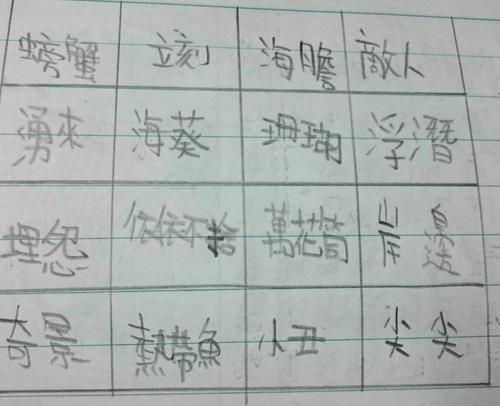 螃蟹 立刻 海膽 敵人
湧來 海葵 珊瑚 浮潛
埋怨 依依不捨 萬花筒
奇景 熱帶魚 小丑 尖尖